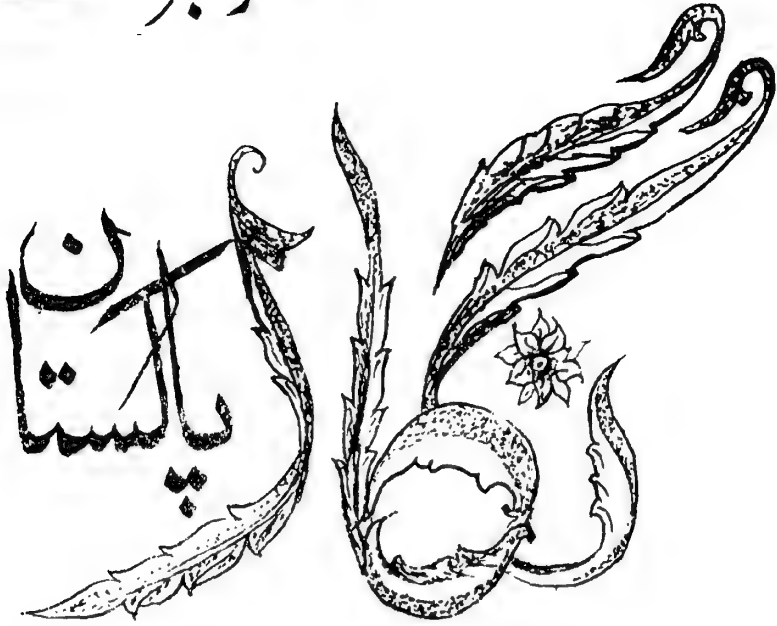 نگار پاکستان